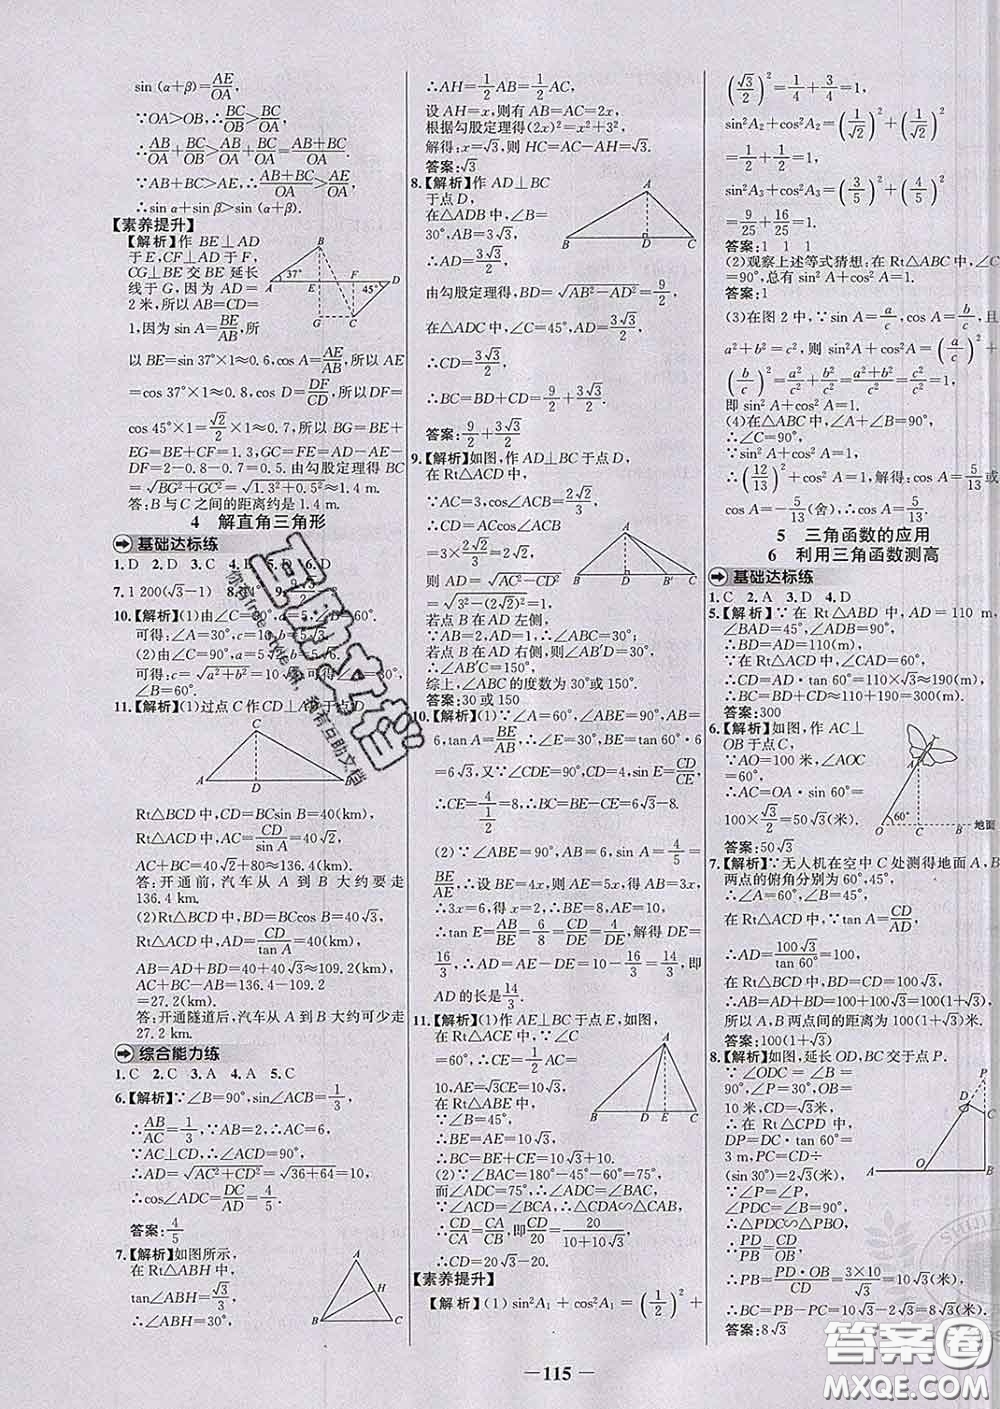 sin (α+β)=AE/OA.
∵OA>OB,∴BC/OB>BC/OA,
∴AB/OA+BC/OB>AB/OA+BC/OA=AB+BC/OA.
∵AB+BC>AE,∴AB+BC/OA>AE/OA,
∴sin α+sin β>sin (α+β).
【素养提升】
【解析】作 BE⊥AD
于 E,CF⊥AD 于 F,
CG⊥BE 交 BE 延长
线于 G,因为 AD=
2 米,所以 AB=CD=
1,因为 sin A=BE/AB,所
以 BE=sin 37°×1≈0.6,cos A=AE/AB,所以 AE
=cos 37°×1≈0.8,cos D=DF/CD,所以 DF=
cos 45°×1=√2/2×1≈0.7,所以 BG=BE+
EG=BE+CF=1.3,GC=FE=AD-AE-
DF=2-0.8-0.7=0.5.由勾股定理得 BC
=√(BG²+GC²)=√(1.3²+0.5²)≈1.4 m.
答:B 与 C 之间的距离约是 1.4 m.
4 解直角三角形
基础达标练
1.D 2.D 3.C 4.B 5.D 6.D
7.1 200(√3-1)
10.【解析】(1)由∠C=90°,
可得:∠A=30°,
(2)由∠C=90°,a=5
可得:c=√(a²+b²)=10
∠B=60°.
11.【解析】(1)过点 C 作 CD⊥AB 于点 D,
Rt△BCD 中,CD=BCsin B=40(km)
Rt△ACD 中,AC=CD/sin A=40√2(km),
AC+BC=40√2+80≈136.4(km).
答:开通前,汽车从 A 到 B 大约要走
136.4 km.
(2)Rt△BCD 中,BD=BCcos B=40√3(km),
Rt△ACD 中,AD=CD/tan A=40(km),
AB=AD+BD=40+40√3≈109.2(km)
AC+BC-AB=136.4-109.2
=27.2(km).
答:开通隧道后,汽车从 A 到 B 大约可少走
27.2 km.
综合能力练
1.C 2.C 3.A 4.A 5.C
6.【解析】∵∠B=90°,sin∠ACB=1/3,
∴AB/AC=1/3,∵AB=2,∴AC=6,
∵AC⊥CD,∴∠ACD=90°,
∴AD=√(AC²+CD²)=√(36+64)=10,
∴cos∠ADC=DC/AD=4/5.
答案:4/5
7.【解析】如图所示,
在 Rt△ABH 中,
tan∠ABH=√3/3,
∴∠ABH=30°,
∴AH=1/2AB=1/2AC,
设 AH=x,则有 AB=AC=2x,
根据勾股定理得(2x)²=x²+3²,
解得:x=√3,则 HC=AC-AH=√3.
答案:√3
8.【解析】作 AD⊥BC
于点 D,
在△ADB 中,∠B=
30°,AB=3√3,
∴AD=3√3/2,
由勾股定理得,BD=√(AB²-AD²)=9/2,
在△ADC 中,∠C=45°,AD=3√3/2,
∴CD=3√3/2,
∴BC=BD+CD=9/2+3√3/2.
答案:9/2+3√3/2
9.【解析】如图,AD⊥BC 于点 D,
在 Rt△ACD 中,
∵AC=3,cos C=2√2/3,
∴CD=ACcos C=2√2,
则 AD=√(AC²-CD²)=
√(3²-(2√2)²)=1,
若点 B 在 AD 左侧,
∵AB=2,AD=1,∴∠ABC=30°;
若点 B 在 AD 右侧,则∠AB′D=30°,
∴∠AB′C=150°,
综上,∠ABC 的度数为 30°或 150°.
答案:30 或 150
10.【解析】(1)∵∠A=60°,∠ABE=90°,AB=
6,tan A=BE/AB,∴∠E=30°,BE=tan 60°·6
=6√3,又∵∠CDE=90°,sin E=CD/CE,CD=4,
∴CE=4/(1/2)=8,∴BC=BE-CE=6√3-8.
(2)∵∠ABE=90°,AB=6,sin A=4/5=
BE/AE,∴设 BE=4x,则 AE=5x,得 AB=3x,
∴3x=6,得 x=2,∴BE=8,AE=10,
∴tan E=AB/BE=6/8=CD/DE=4/DE,解得 DE=
16/3,∴AD=AE-DE=10-16/3=14/3,即
AD 的长是14/3.
11.【解析】(1)作 AE⊥BC 于点 E,如图,
在 Rt△ACE 中,∵∠C
=60°,∴CE=1/2AC=
10,AE=√3CE=10√3,
在 Rt△ABE 中,
∵∠B=45°,
∴BE=AE=10√3,
∴BC=BE+CE=10√3+10.
(2)∵∠BAC=180°-45°-60°=75°,
而∠ADC=75°,∴∠ADC=∠BAC,
∵∠ACD=∠BCA,∴△CDA∽△CAB,
∴CD/CA=CA/CB,即CD/20=20/10+10√3,
∴CD=20√3-20.
【素养提升】
【解析】(1) sin²A₁+cos²A₁=(1/2)²+
(√3/2)²=1/4+3/4=1,
sin²A₂+cos²A₂=(1/√2)²+(1/√2)²
=1/2+1/2=1,
sin²A₃+cos²A₃=(3/5)²+(4/5)²
=9/25+16/25=1.
答案:1 1 1
(2)观察上述等式猜想:在 Rt△ABC 中,∠C
=90°,总有 sin²A+cos²A=1.
答案:1
(3)在图 2 中,∵sin A=a/c,cos A=b/c,且
a²+b²=c²,则 sin²A+cos²A=(a/c)²+
(b/c)²=a²/c²+b²/c²=a²+b²/c²=c²/c²=1,
即 sin²A+cos²A=1.
(4)在△ABC 中,∠A+∠B=90°,
∴∠C=90°,
∵sin²A+cos²A=1,
∴(12/13)²+cos²A=1,解得 cos A=5/13或 cos A=
-5/13(舍),∴cos A=5/13.
5 三角函数的应用
6 利用三角函数测高
基础达标练
1.C 2.A 3.D 4.D
5.【解析】∵在 Rt△ABD 中,AD=110 m,
∠BAD=45°,∠ADB=90°,
∴BD=AD=110(m),
∵在 Rt△ACD 中,∠CAD=60°,
∴CD=AD·tan 60°=110×√3≈190(m),
∴BC=BD+CD≈110+190=300(m),
答案:300
6.【解析】如图,作 AC⊥
OB 于点 C,
∵AO=100 米,∠AOC
=60°,
∴AC=OA·sin 60°=
100×√3/2=50√3(米).
答案:50√3
7.【解析】∵无人机在空中 C 处测得地面 A,B
两点的俯角分别为 60°,45°,
在 Rt△ACD 中,∵tan A=CD/AD,
∴AD=100√3/tan 60°=100,
在 Rt△BCD 中,BD=CD=100√3,
∴AB=AD+BD=100+100√3=100(1+√3)米.
所以 A,B 两点间的距离为 100(1+√3)米.
答案:100(1+√3)
8.【解析】如图,延长 OD,BC 交于点 P.
∵∠ODC=∠B=
90°,∠P=30°,OB=
10 米,CD=√3米,
∴在 Rt△CPD 中,
DP=DC·tan 60°=
3 m,PC=CD÷
(sin 30°)=2√3(米),
∵∠P=∠P,
∠PDC=∠B=90°,
∴△PDC∽△PBO,
∴PD/PB=CD/OB,
∴PB=PD·OB/CD=3×10/√3=10√3(米),
∴BC=PB-PC=10√3-2√3=8√3(米).
答案:8√3
— 115 —
答案圈
MXQE.COM